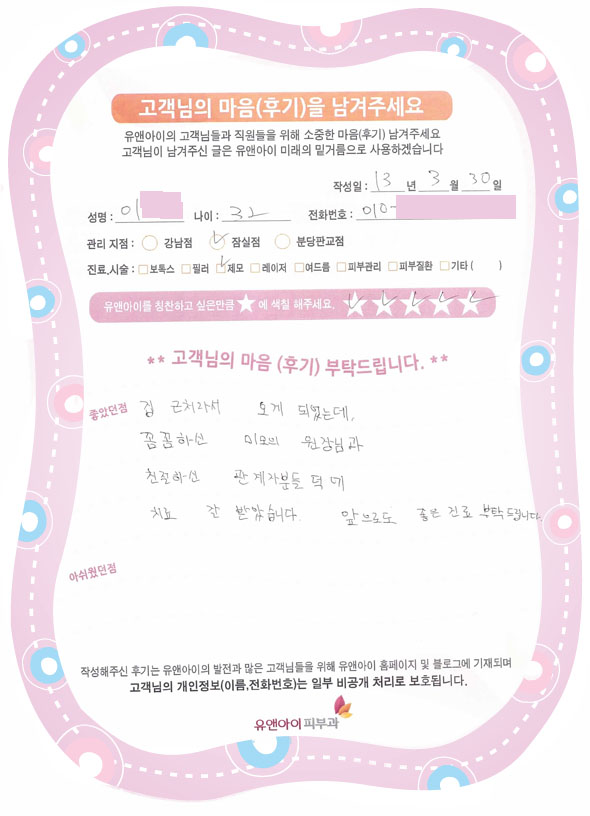 고객님의 마음(후기)을 남겨주세요
유앤아이의 고객님들과 직원들을 위해 소중한 마음(후기) 남겨주세요
고객님이 남겨주신 글은 유앤아이 미래의 밑거름으로 사용하겠습니다
작성일 : 13 년 3 월 30 일
성명 : 이 나이 : 32 전화번호 : 010-
관리 지점 : 강남점 잠실점 분당판교점
진료,시술 : 보톡스 필러 제모 레이저 여드름 피부관리 피부질환 기타 ( )
유앤아이를 칭찬하고 싶은만큼 ★ 에 색칠 해주세요.
** 고객님의 마음 (후기) 부탁드립니다. **
좋았던점 집 근처라서 오게 되었는데,
꼼꼼하신 미모의 원장님과
친절하신 관계자분들 덕에
치료 잘 받았습니다. 앞으로도 좋은 진료 부탁드립니다.
아쉬웠던점
작성해주신 후기는 유앤아이의 발전과 많은 고객님들을 위해 유앤아이 홈페이지 및 블로그에 기재되며
고객님의 개인정보(이름,전화번호)는 일부 비공개 처리로 보호됩니다.
유앤아이피부과